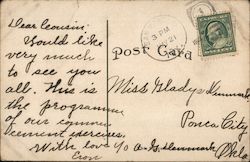 Dear Cousin:
Would like
very much
to see you
all. This is
the programme
of our commen
cement exercises.
With love
3 PM
21
Post Card
Miss Gladys
Ponca City
Okla